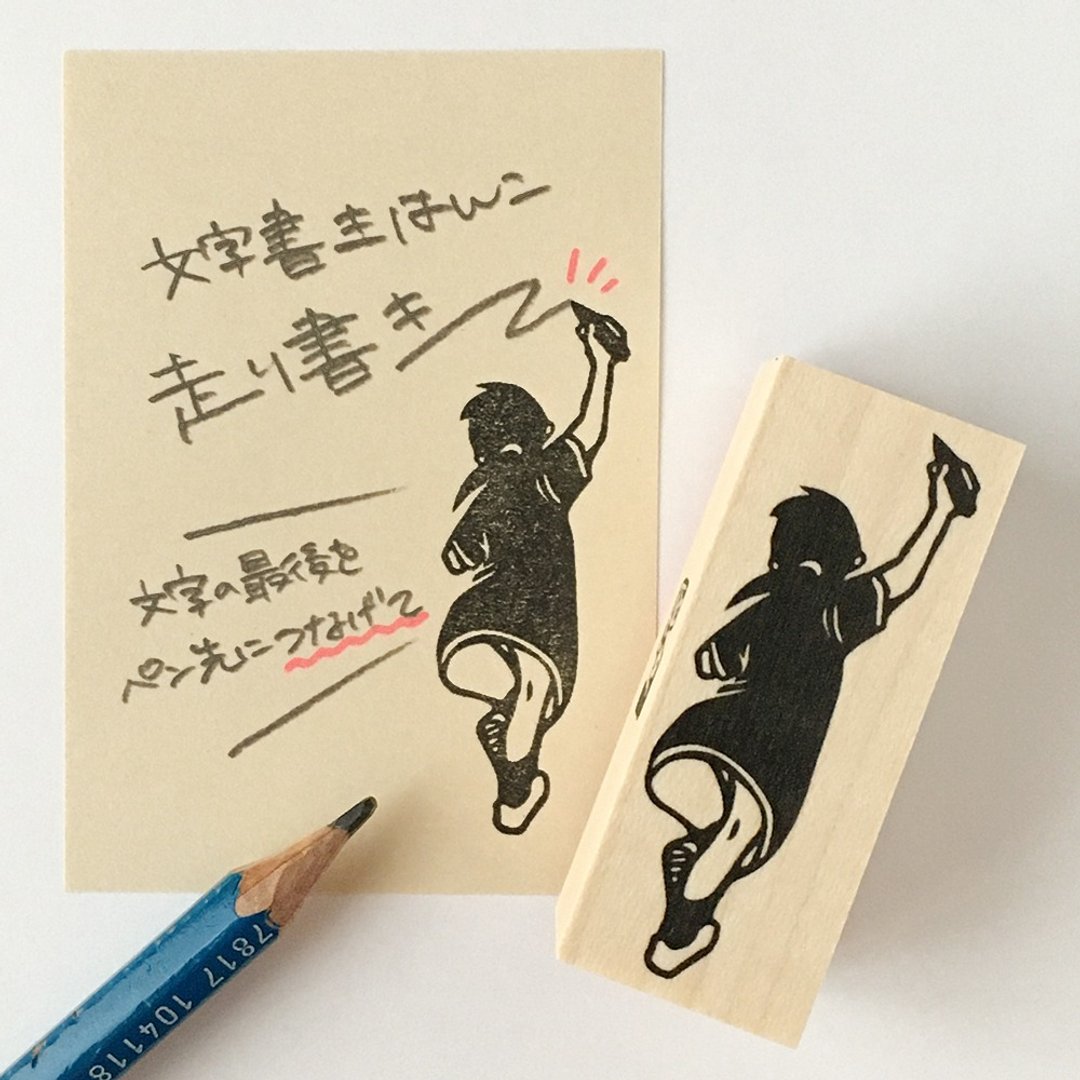 文字書主はんこ
走り書き
文字の最後を
ペン先につなげて
7817 104118